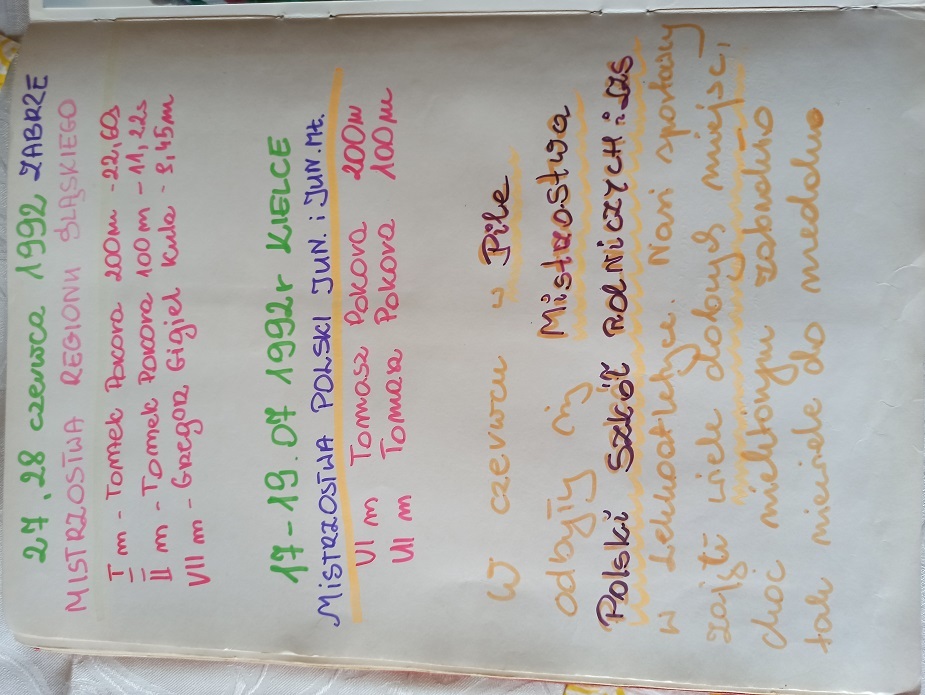 27, 28 czerwca 1992 ZABRZE
MISTRZOSTWA REGIONU ŚLĄSKIEGO
I m - Tomek Pokora 200m - 22,60s
II m - Tomek Pokora 100m - 11,22s
VII m - Grzegorz Gigiel Kula - 9,45m
17-19.07 1992r KIELCE
MISTRZOSTWA POLSKI JUN. i JUN. Mł.
VI m Tomasz Pokora 200m
VI m Tomasz Pokora 100m
W czerwcu w Pile
odbyły się Mistrzostwa
Polski Szkół ROLNICZYCH i Leś
w Lekkoatletyce. Nasi sportowcy
zajęli wiele dobrych miejsc,
choć niektórym zabrakło
tak niewiele do medalu